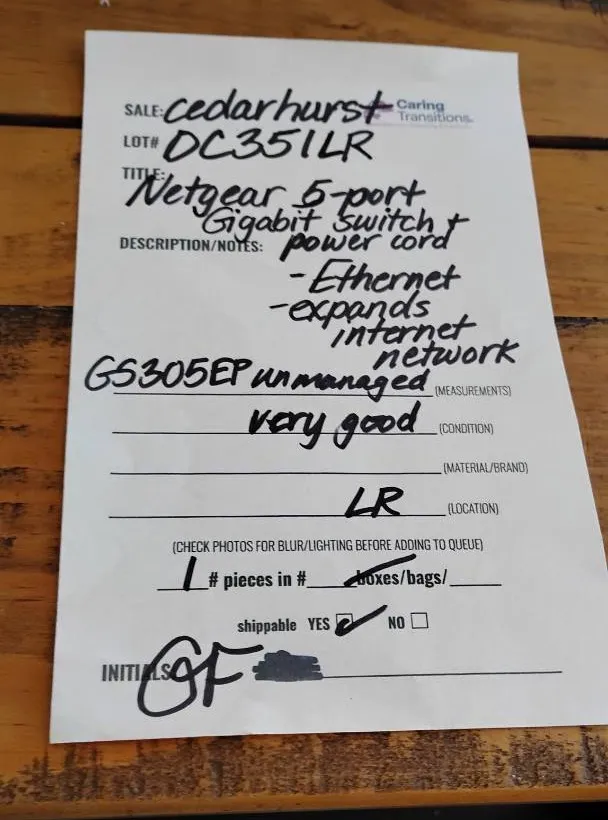 SALE: cedarhurst Caring
Transitions.
LOT# DC351LR
TITLE:
Netgear 5-port
Gigabit switch +
DESCRIPTION/NOTES: power cord
- Ethernet
- expands
internet
network
GS305EP unmanaged (MEASUREMENTS)
very good (CONDITION)
(MATERIAL/BRAND)
LR (LOCATION)
(CHECK PHOTOS FOR BLUR/LIGHTING BEFORE ADDING TO QUEUE)
1 # pieces in # boxes/bags/
shippable YES NO
INITIALS GF